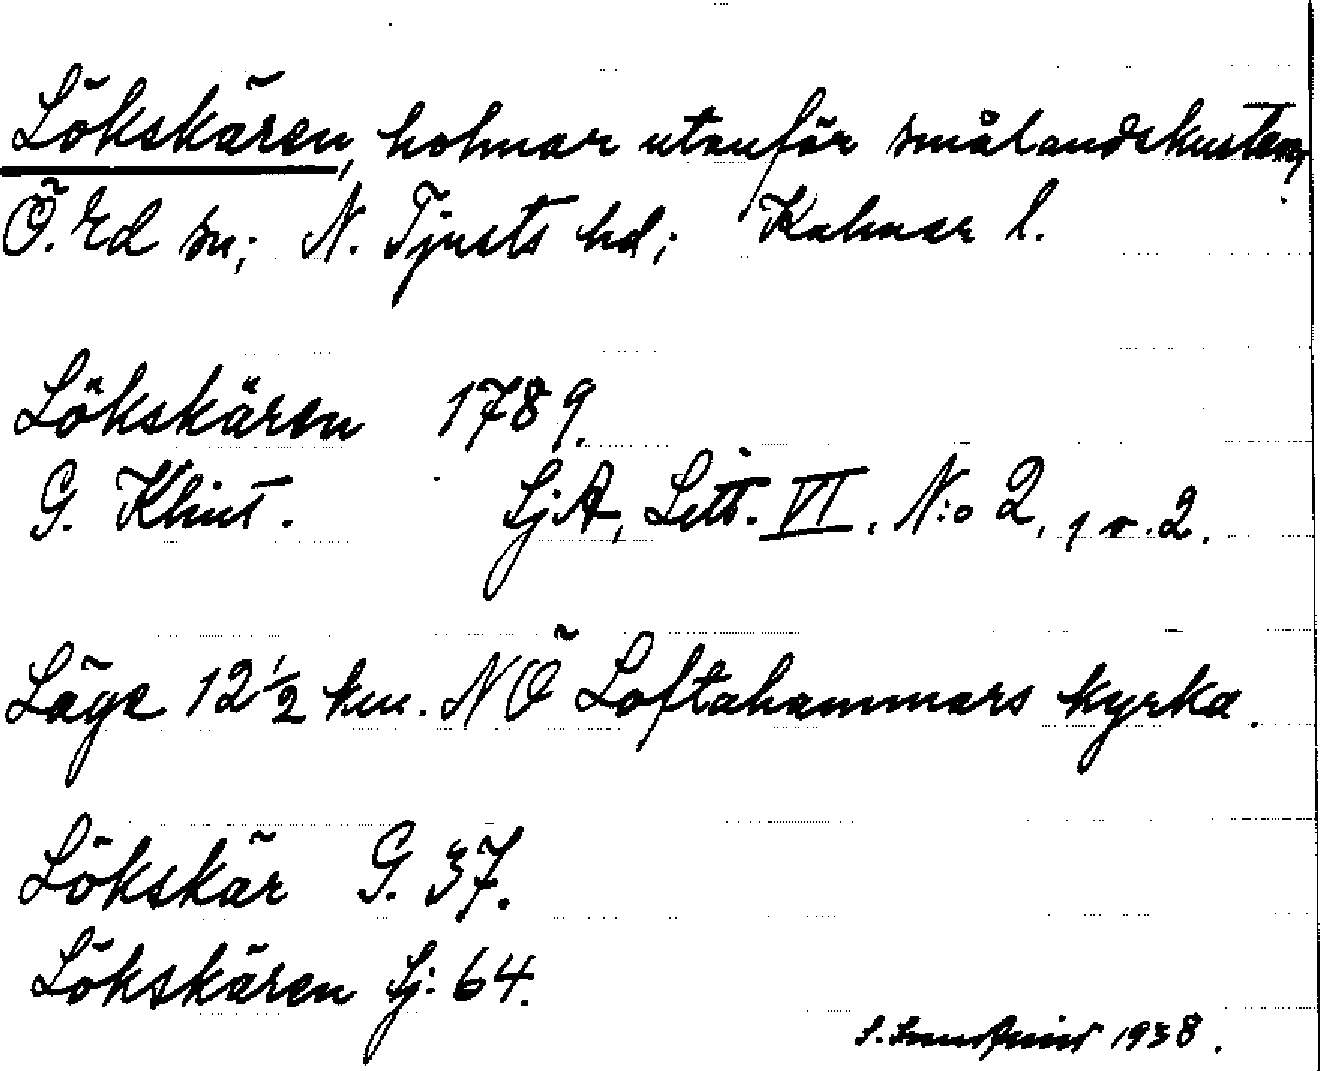 Lökskären, holmar utanför smålandskusten,
Ö. Ed sn; N. Tjusts hd; Kalmar l.
Lökskären 1789.
G. Klint. SjA, Litt. VI. N:o 2, 1 v. 2.
Läge 12 1/2 km. NÖ Loftahammars kyrka.
Lökskär G. 37.
Lökskären Sj: 64.
S. 1938.